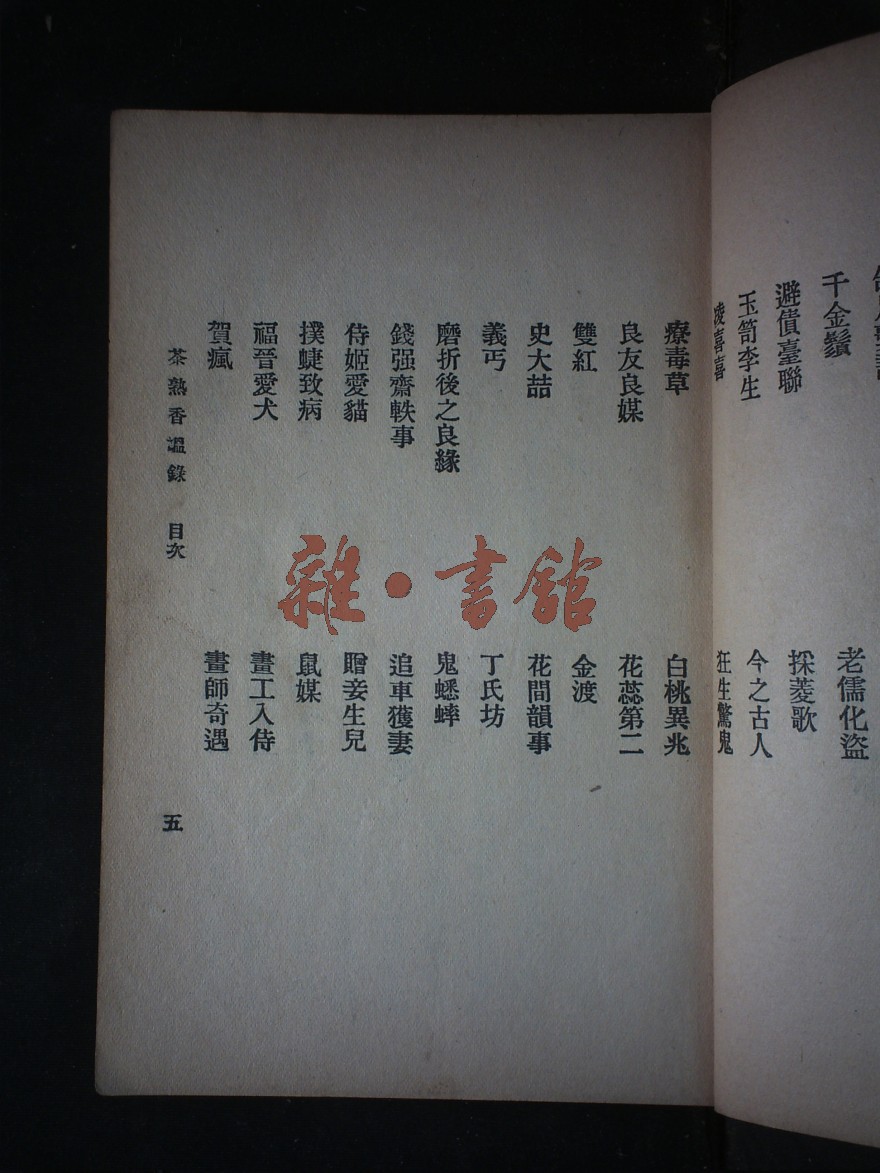 千金鬚
老儒化盜
避債臺聯
採菱歌
玉笥李生
今之古人
喜喜
狂生驚鬼
療毒草
白桃異兆
良友良媒
花蕊第二
雙紅
金渡
史大喆
花間韻事
義丐
丁氏坊
磨折後之良緣
鬼蟋蟀
錢强齋軼事
追車獲妻
侍姬愛貓
贈妾生兒
撲蜨致病
鼠媒
福晉愛犬
畫工入侍
賀瘋
畫師奇遇
茶熟香溫錄 目次
五
雜·書館